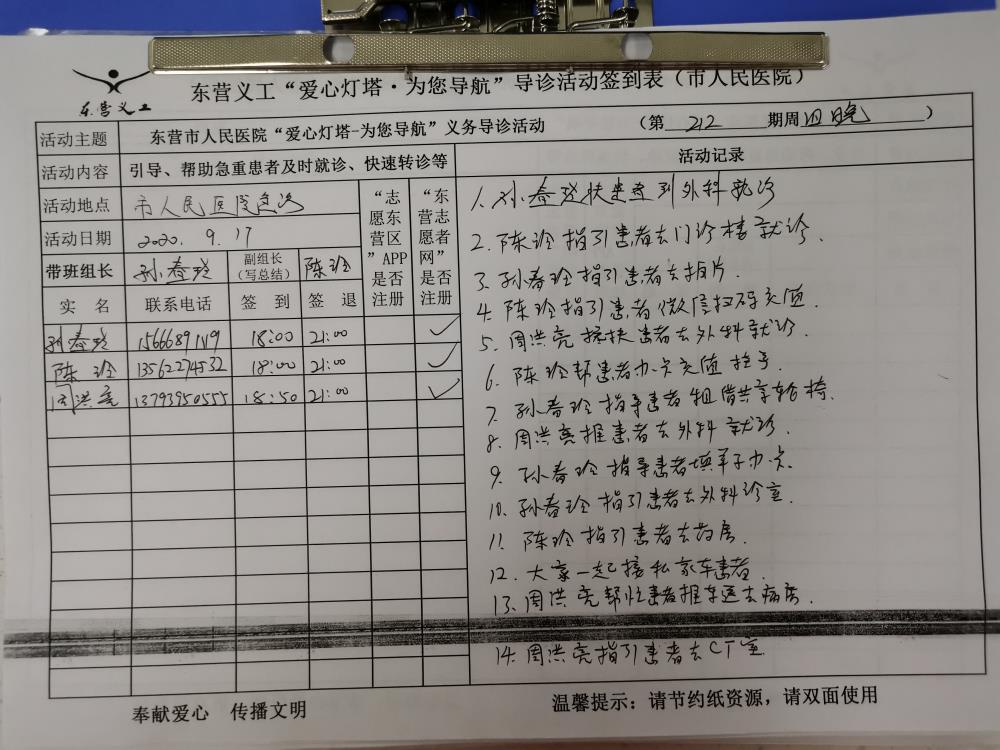 东营义工“爱心灯塔·为您导航”导诊活动签到表（市人民医院）
东营义工
活动主题 东营市人民医院“爱心灯塔-为您导航”义务导诊活动 （第 212 期周四晚 ）
活动内容 引导、帮助急重患者及时就诊、快速转诊等
活动地点 市人民医院急诊
活动日期 2020. 9. 17
带班组长 孙春玲 副组长（写总结） 陈玲
“志愿东营区”APP是否注册
“东营志愿者网”是否注册
实 名 联系电话 签 到 签 退
孙春玲 15666891119 18:00 21:00 ✓
陈 玲 13562274532 18:00 21:00 ✓
周洪亮 13793950555 18:50 21:00 ✓
活动记录
1. 孙春玲扶患者到外科就诊
2. 陈玲指引患者去门诊楼就诊.
3. 孙春玲指引患者去拍片.
4. 陈玲指引患者微信扫码充值.
5. 周洪亮搀扶患者去外科就诊.
6. 陈玲帮患者办卡充值挂号.
7. 孙春玲指导患者租借共享轮椅.
8. 周洪亮推患者去外科就诊.
9. 孙春玲指导患者填单子办卡.
10. 孙春玲指引患者去外科诊室.
11. 陈玲指引患者去药房.
12. 大家一起接私家车患者.
13. 周洪亮帮忙患者推车送去病房.
14. 周洪亮指引患者去CT室
奉献爱心 传播文明
温馨提示：请节约纸资源，请双面使用